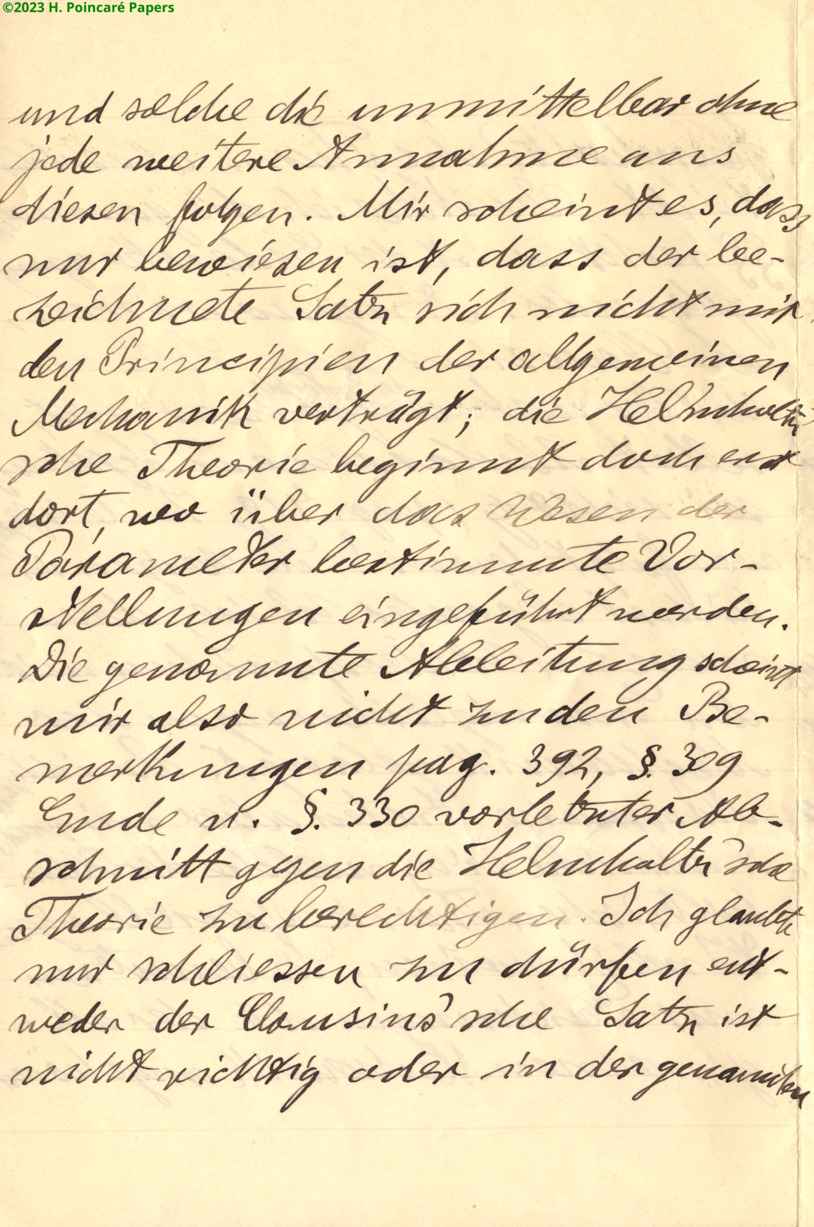 ©2023 H. Poincaré Papers
und solche die unmittelbar ohne
jede weitere Annahme aus
diesen folgen. Mir scheint es, dass
nur bewiesen ist, dass der be-
zeichnete Satz sich nicht mit
den Principien der allgemeinen
Mechanik verträgt; die Helmholtz'
sche Theorie beginnt doch erst
dort, wo über das Wesen der
Parameter bestimmte Vor-
stellungen eingeführt werden.
Die genannte Ableitung scheint
mir also nicht zu den Be-
merkungen pag. 392, §. 309
Ende u. §. 330 vorletzter Ab-
schnitt gegen die Helmholtz'sche
Theorie zu berechtigen. Ich glaubte
nur schliessen zu dürfen ent-
weder der Clausius'sche Satz ist
nicht richtig oder in der genannten